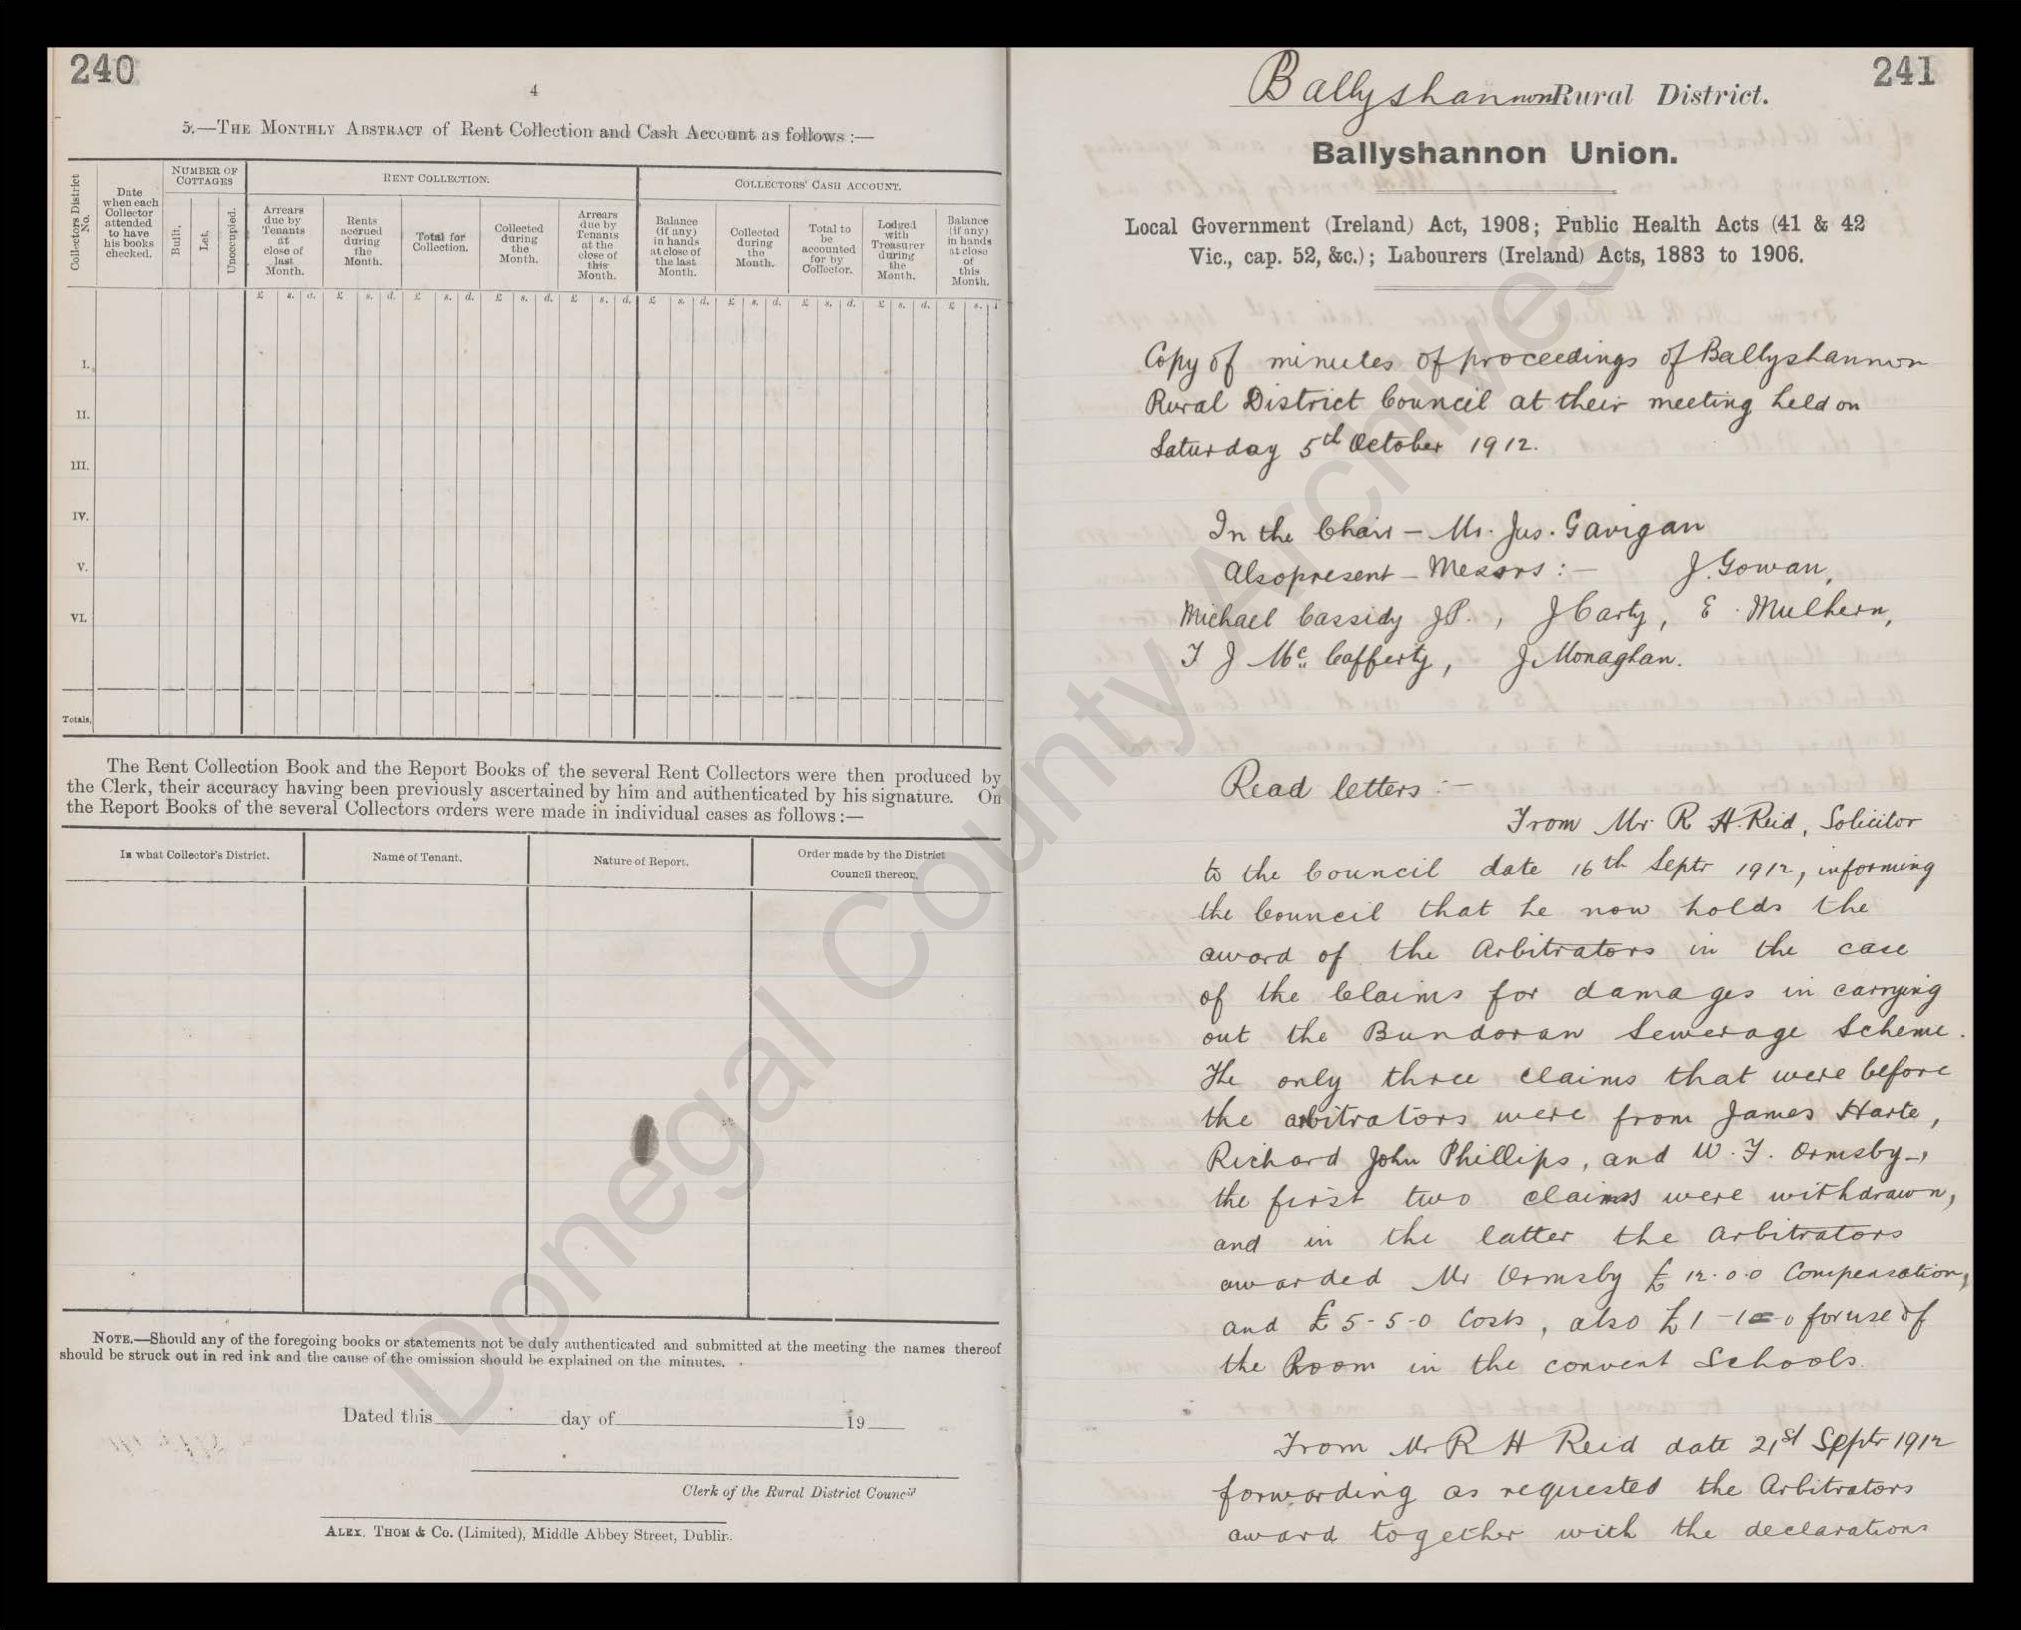 240
4
5.—THE MONTHLY ABSTRACT of Rent Collection and Cash Account as follows :—
Collectors District No.
Date when each Collector attended to have his books checked.
NUMBER OF COTTAGES
Built.
Let.
Unoccupied.
RENT COLLECTION.
Arrears due by Tenants at close of last Month.
Rents accrued during the Month.
Total for Collection.
Collected during the Month.
Arrears due by Tenants at the close of this Month.
COLLECTORS' CASH ACCOUNT.
Balance (if any) in hands at close of the last Month.
Collected during the Month.
Total to be accounted for by Collector.
Lodged with Treasurer during the Month.
Balance (if any) in hands at close of this Month.
£ s. d. £ s. d. £ s. d. £ s. d. £ s. d. £ s. d. £ s. d. £ s. d. £ s. d. £ s.
I.
II.
III.
IV.
V.
VI.
Totals,
The Rent Collection Book and the Report Books of the several Rent Collectors were then produced by
the Clerk, their accuracy having been previously ascertained by him and authenticated by his signature. On
the Report Books of the several Collectors orders were made in individual cases as follows :—
In what Collector's District.
Name of Tenant.
Nature of Report.
Order made by the District
Council thereon.
NOTE.—Should any of the foregoing books or statements not be duly authenticated and submitted at the meeting the names thereof
should be struck out in red ink and the cause of the omission should be explained on the minutes.
Dated this day of 19
Clerk of the Rural District Council
ALEX. THOM & Co. (Limited), Middle Abbey Street, Dublin.
241
Ballyshannon Rural District.
Ballyshannon Union.
Local Government (Ireland) Act, 1908; Public Health Acts (41 & 42
Vic., cap. 52, &c.); Labourers (Ireland) Acts, 1883 to 1906.
Copy of minutes of proceedings of Ballyshannon
Rural District Council at their meeting held on
Saturday 5th October 1912.
In the Chair – Mr. Jas. Gavigan
Also present – Messrs :– J. Gowan,
Michael Cassidy J.P., J Carty, E. Mulhern,
T J McCafferty, J. Monaghan.
Read letters :–
From Mr R H. Reid, Solicitor
to the Council date 16th Septr 1912, informing
the Council that he now holds the
award of the Arbitrators in the case
of the Claims for damages in carrying
out the Bundoran Sewerage Scheme.
The only three claims that were before
the arbitrators were from James Harte,
Richard John Phillips, and W. F. Ormsby –,
the first two claims were withdrawn,
and in the latter the Arbitrators
awarded Mr Ormsby £12.0.0 Compensation,
and £5-5-0 Costs, also £1-1-0 for use of
the Room in the convent Schools.
From Mr R H Reid date 21st Septr 1912
forwarding as requested the Arbitrators
award together with the declarations
Donegal County Archives